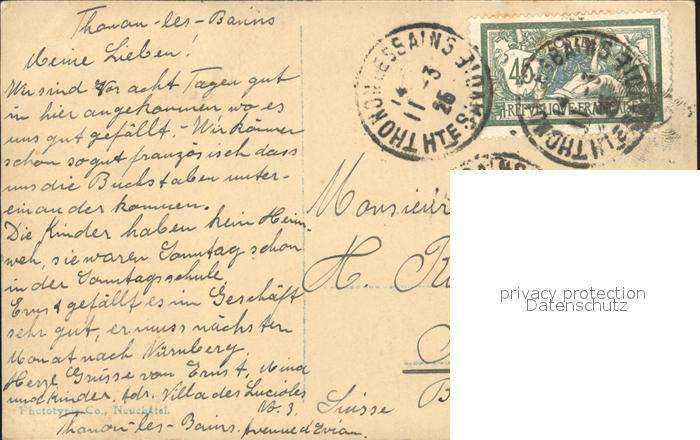 Thonon-les-Bains
Meine Lieben!
Wir sind vor acht Tagen gut
in hier angekommen wo es
uns gut gefällt. Wir können
schon so gut französisch dass
uns die Buchstaben unter-
einander kommen.
Die Kinder haben kein Heim-
weh, sie waren Sonntag schon
in der Sonntagsschule.
Ernst gefällt es im Geschäft
sehr gut, er muss nächsten
Monat nach Nürnberg.
Herzl. Grüsse von Ernst, Mina
und Kinder, Adr. Villa des Lucioles
No. 3.
Thonon-les-Bains, Avenue d'Evian.
Phototypie Co., Neuchâtel.
THONON-LES-BAINS
11-3
26
HTE SAVOIE
40
REPUBLIQUE FRANCAISE
Monsieur
H.
Suisse
privacy protection
Datenschutz